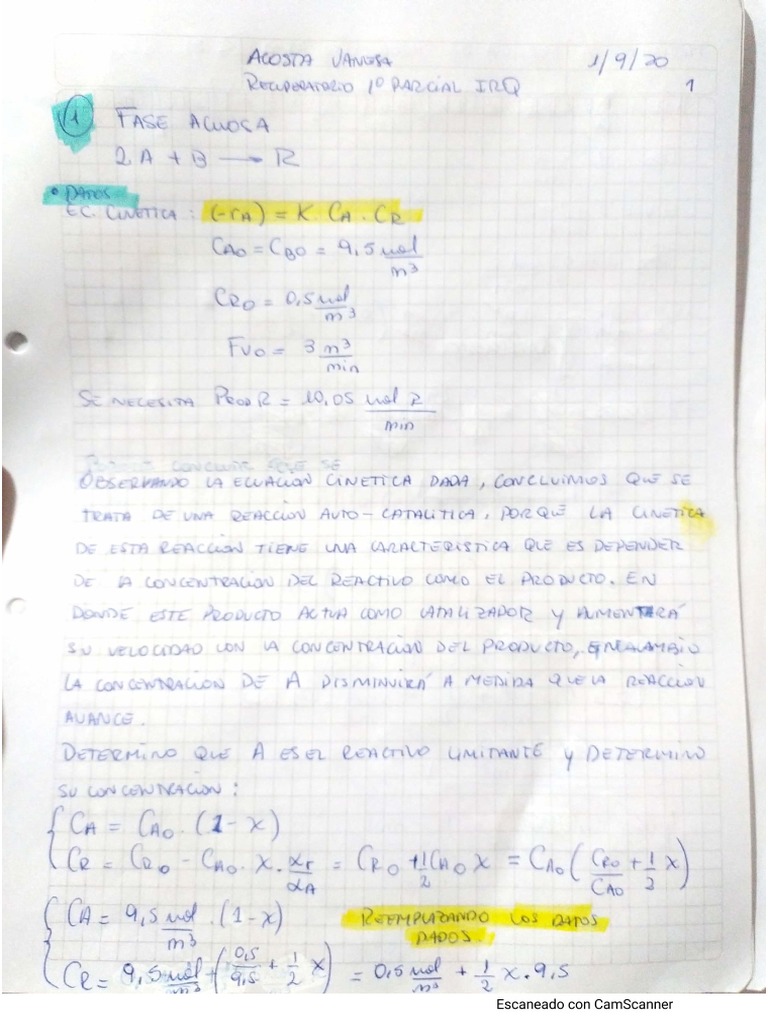 ACOSTA VANESA 1/9/20
RECUPERATORIO 1º PARCIAL IRQ 1
1 FASE ACUOSA
2A + B → R
• DATOS
EC. CINETICA: (-rA) = K. CA. CR
CA0 = CB0 = 9,5 mol/m³
CR0 = 0,5 mol/m³
Fv0 = 3 m³/min
SE NECESITA Prod R = 10,05 mol R/min
CONCLUIR QUE SE
OBSERVANDO LA ECUACION CINETICA DADA, CONCLUIMOS QUE SE
TRATA DE UNA REACCION AUTO-CATALITICA, PORQUE LA CINETICA
DE ESTA REACCION TIENE UNA CARACTERISTICA QUE ES DEPENDER
DE LA CONCENTRACION DEL REACTIVO COMO EL PRODUCTO. EN
DONDE ESTE PRODUCTO ACTUA COMO CATALIZADOR Y AUMENTERÁ
SU VELOCIDAD CON LA CONCENTRACION DEL PRODUCTO, EN CAMBIO
LA CONCENTRACION DE A DISMINUIRÁ A MEDIDA QUE LA REACCION
AVANCE.
DETERMINO QUE A ES EL REACTIVO LIMITANTE Y DETERMINO
SU CONCENTRACION:
{ CA = CA0. (1 - X)
CR = CR0 - CA0. X. αr/αA = CR0 + 1/2 CA0 X = CA0 (CR0/CA0 + 1/2 X)
{ CA = 9,5 mol/m³. (1-X) REEMPLAZANDO LOS DATOS
DADOS.
CR = 9,5 mol/m³ (0,5/9,5 + 1/2 X) = 0,5 mol/m³ + 1/2 X. 9,5
Escaneado con CamScanner